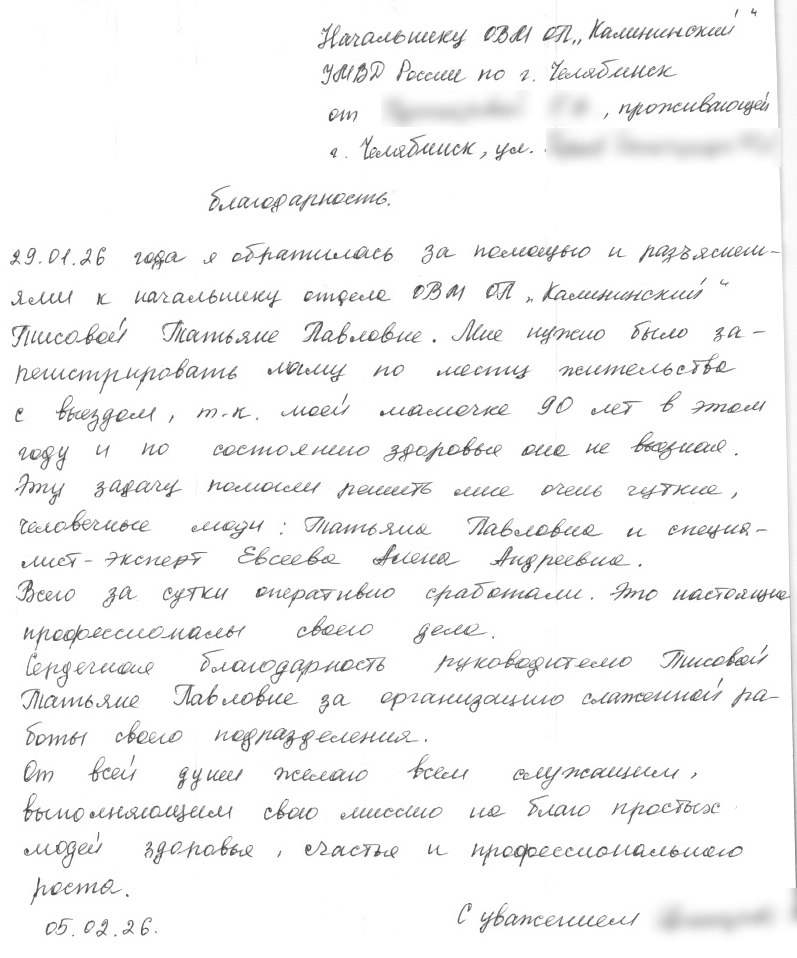 Начальнику ОВМ ОП „Калининский"
УМВД России по г. Челябинск
от , проживающей
г. Челябинск, ул.
благодарность.
29.01.26 года я обратилась за помощью и разъяснен-
ями к начальнику отдела ОВМ ОП „Калининский"
Писовой Татьяне Павловне. Мне нужно было за-
регистрировать маму по месту жительства
с выездом, т.к. моей мамочке 90 лет в этом
году и по состоянию здоровья она не
Эту задачу помогли решить мне очень чуткие,
человечные люди: Татьяна Павловна и специа-
лист-эксперт Евсеева Алена Андреевна.
Всего за сутки оперативно сработали. Это настоящие
профессионалы своего дела.
Сердечная благодарность руководителю Писовой
Татьяне Павловне за организацию слаженной ра-
боты своего подразделения.
От всей души желаю всем служащим,
выполняющим свою миссию на благо простых
людей здоровья, счастья и профессионального
роста.
05.02.26.
С уважением